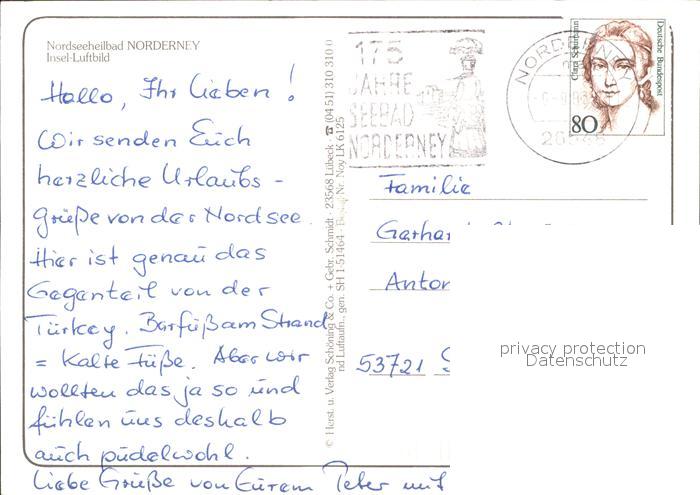 Nordseeheilbad NORDERNEY
Insel-Luftbild
Hallo, Ihr Lieben!
Wir senden Euch
herzliche Urlaubs-
grüße von der Nordsee.
Hier ist genau das
Gegenteil von der
Türkey. Barfuß am Strand
= Kalte Füße. Aber wir
wollten das ja so und
fühlen uns deshalb
auch pudelwohl.
Liebe Grüße von Eurem Peter mit
© Herst. u. Verlag Schöning & Co. + Gebr. Schmidt · 23568 Lübeck · ☎ (04 51) 310 310 0
nd Luftaufn., gen. SH 1-51464 · Best.-Nr. Noy LK 6125
175
JAHRE
SEEBAD
NORDERNEY
NORDERNEY
26548
Clara Schumann
Deutsche Bundespost
80
Familie
Gerhar
Anton
53721 S
privacy protection
Datenschutz